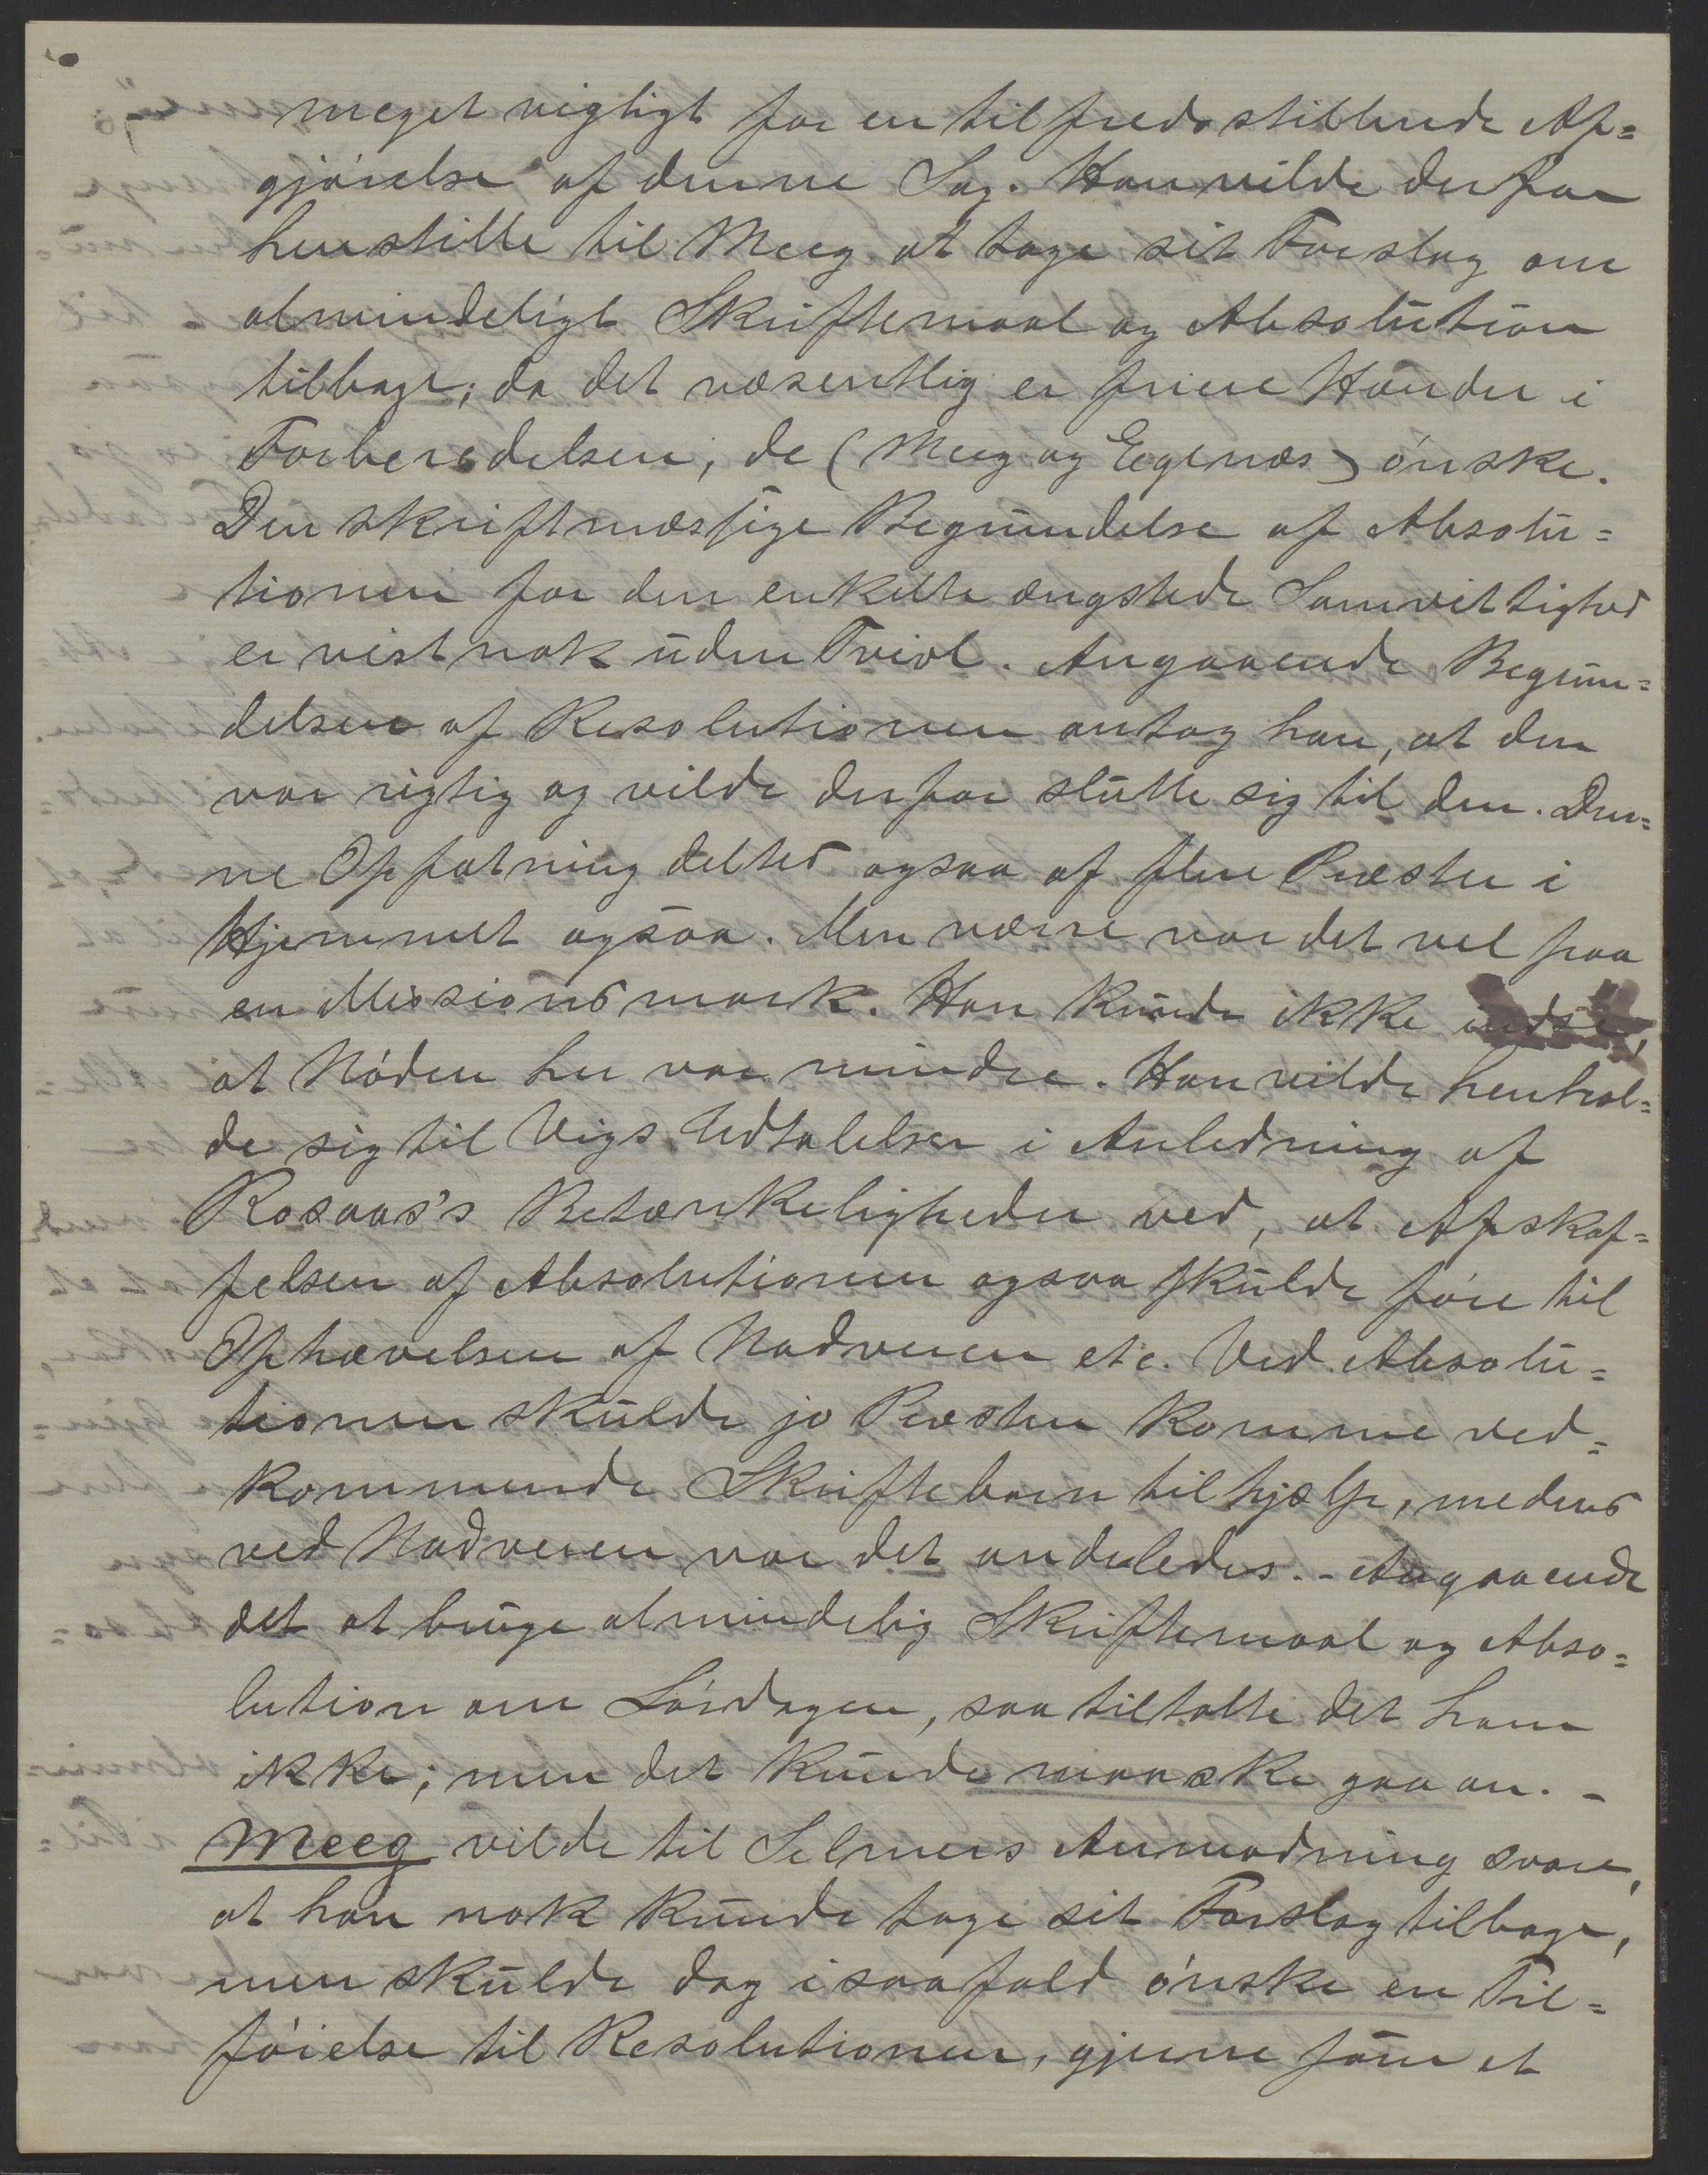 meget vigtigt for en tilfredsstillende Af=
gjórelse af denne Sag. Han vilde derfor
henstille til Meeg at tage sit Forslag om
almindeligt Skriftemaal og Absolution
tilbage; da det væsentlig er friere Hænder i
Forberedelsen, de (Meeg og Egenæs) ónske.
Den skriftmæssige Begrundelse af Absolu=
tionen for den enkelte ængstede Samvittighed
er vist nok uden Tvivl. Angaaende Begrun=
delsen af Resolutionen antog han, at den
var rigtig og vilde derfor slutte sig til den. Den=
ne Opfatning deltes ogsaa af flere Præster i
Hjemmet ogsaa. Men værre var det vel paa
en Missionsmark. Han kunde ikke indse,
at Nóden her var mindre. Han vilde henhol=
de sig til Vigs Udtalelser i Anledning af
Rosaas's Betænkeligheder ved, at Afskaf=
felsen af Absolutionen ogsaa skulde fóre til
Ophævelsen af Nadveren etc. Ved Absolu=
tionen skulde jo Præsten komme ved=
kommende Skriftebarn til hjælp, medens
ved Nadveren var det anderledes. - Angaaende
det at bruge almindelig Skriftemaal og Abso=
lution om Lórdagen, saa tiltalte det ham
ikke; men det kunde maaske gaa an. -
Meeg vilde til Selmers Anmodning svare,
at han nok kunde tage sit Forslag tilbage,
men skulde dog isaafald ónske en Til=
fóielse til Resolutionen, gjerne som et